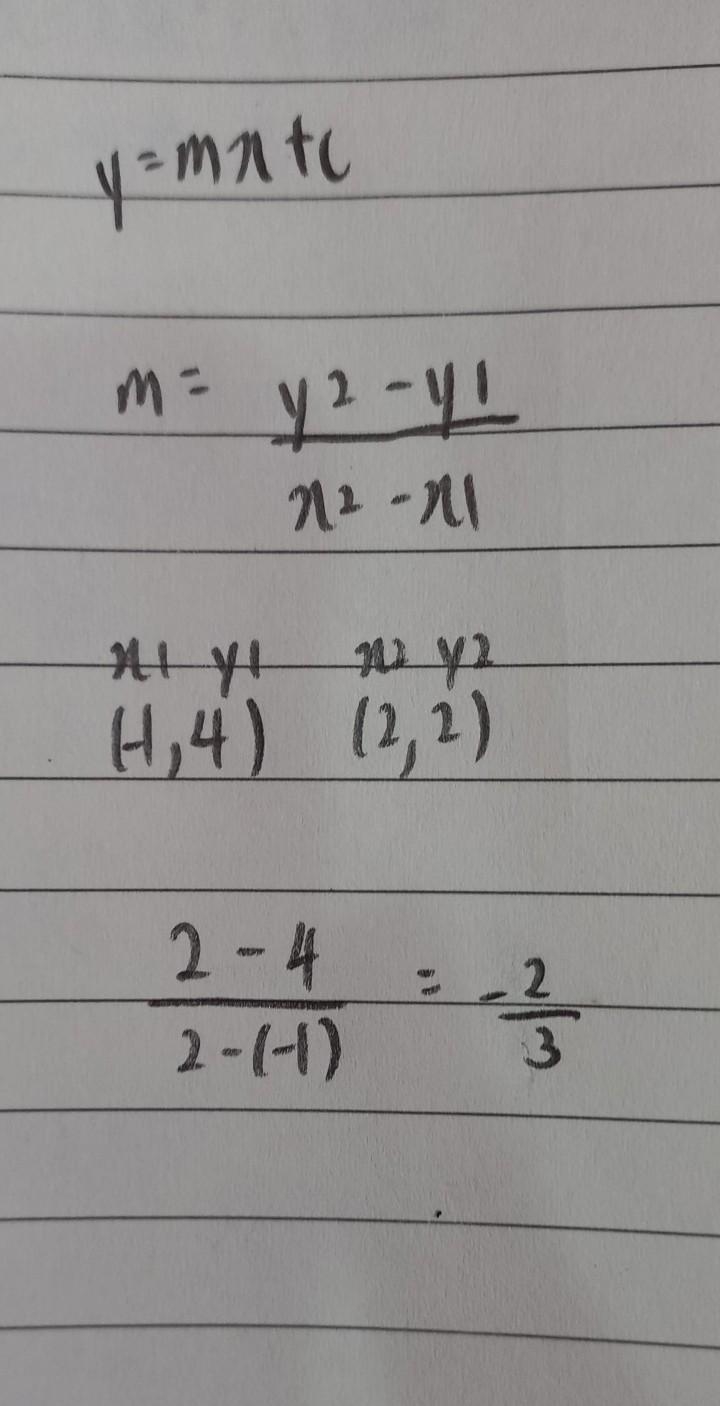 y = mx + c
m = y2 - y1
x2 - x1
x1 y1 x2 y2
(-1,4) (2,2)
2 - 4 = -2
2 - (-1) 3